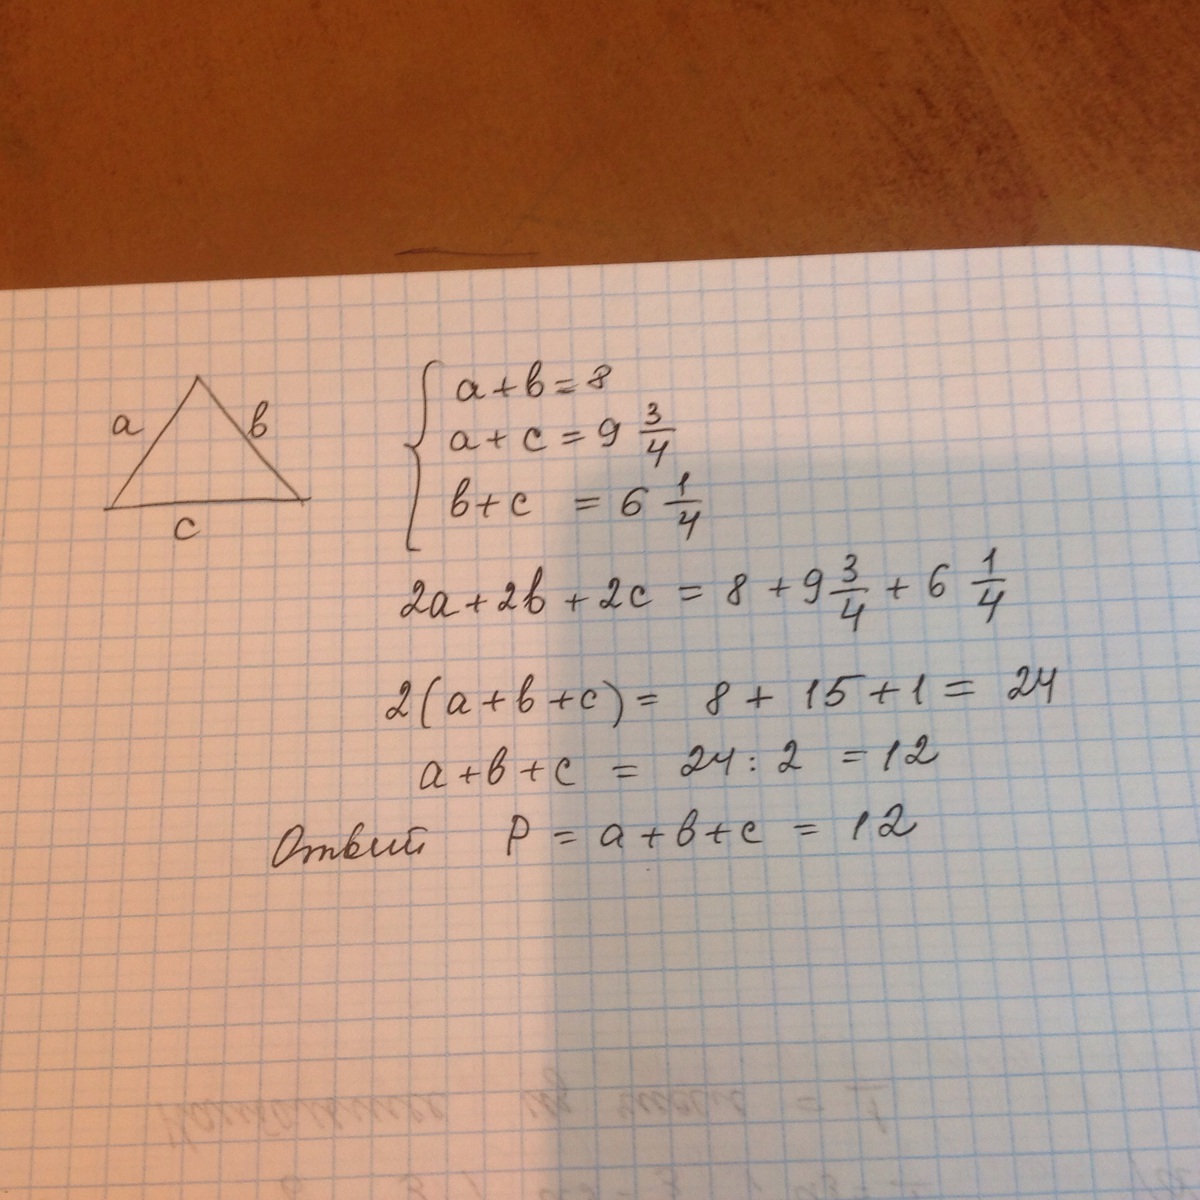 a b
c
a+b=8
a+c=9 3/4
b+c = 6 1/4
2a+2b+2c = 8+9 3/4 + 6 1/4
2(a+b+c) = 8+15+1= 24
a+b+c = 24:2 =12
Ответ P = a+b+c = 12